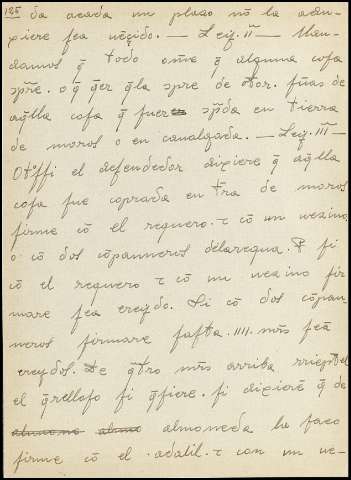 125 da acada un plazo nō la adu-
xiere sea uēzido. — Ley. II — Man-
damos q̄ todo om̄e q̄ alguna cosa
cp̄re. o q̄ q̄er q̄la cpre de
aq̄lla cosa q̄ fuere en tierra
de moros o en caualgada. — Ley. III —
Otossi el defendedor dixiere q̄ aq̄lla
cosa fue coprada en tr̄a de moros
firme cō el requero. τ cō un uezino
o cō dos cōpanneros delarequa. E si
cō el requero τ cō un uezino fir
mare sea creydo. Si cō dos cōpan
neros firmare fasta. IIII. mr̄s seā
creydos. De q̄tro mr̄s arriba rriepte
el q̄relloso si q̄siere. si dixierē q̄ de
almoneda la saco
firme cō el adalil. τ con un ue-